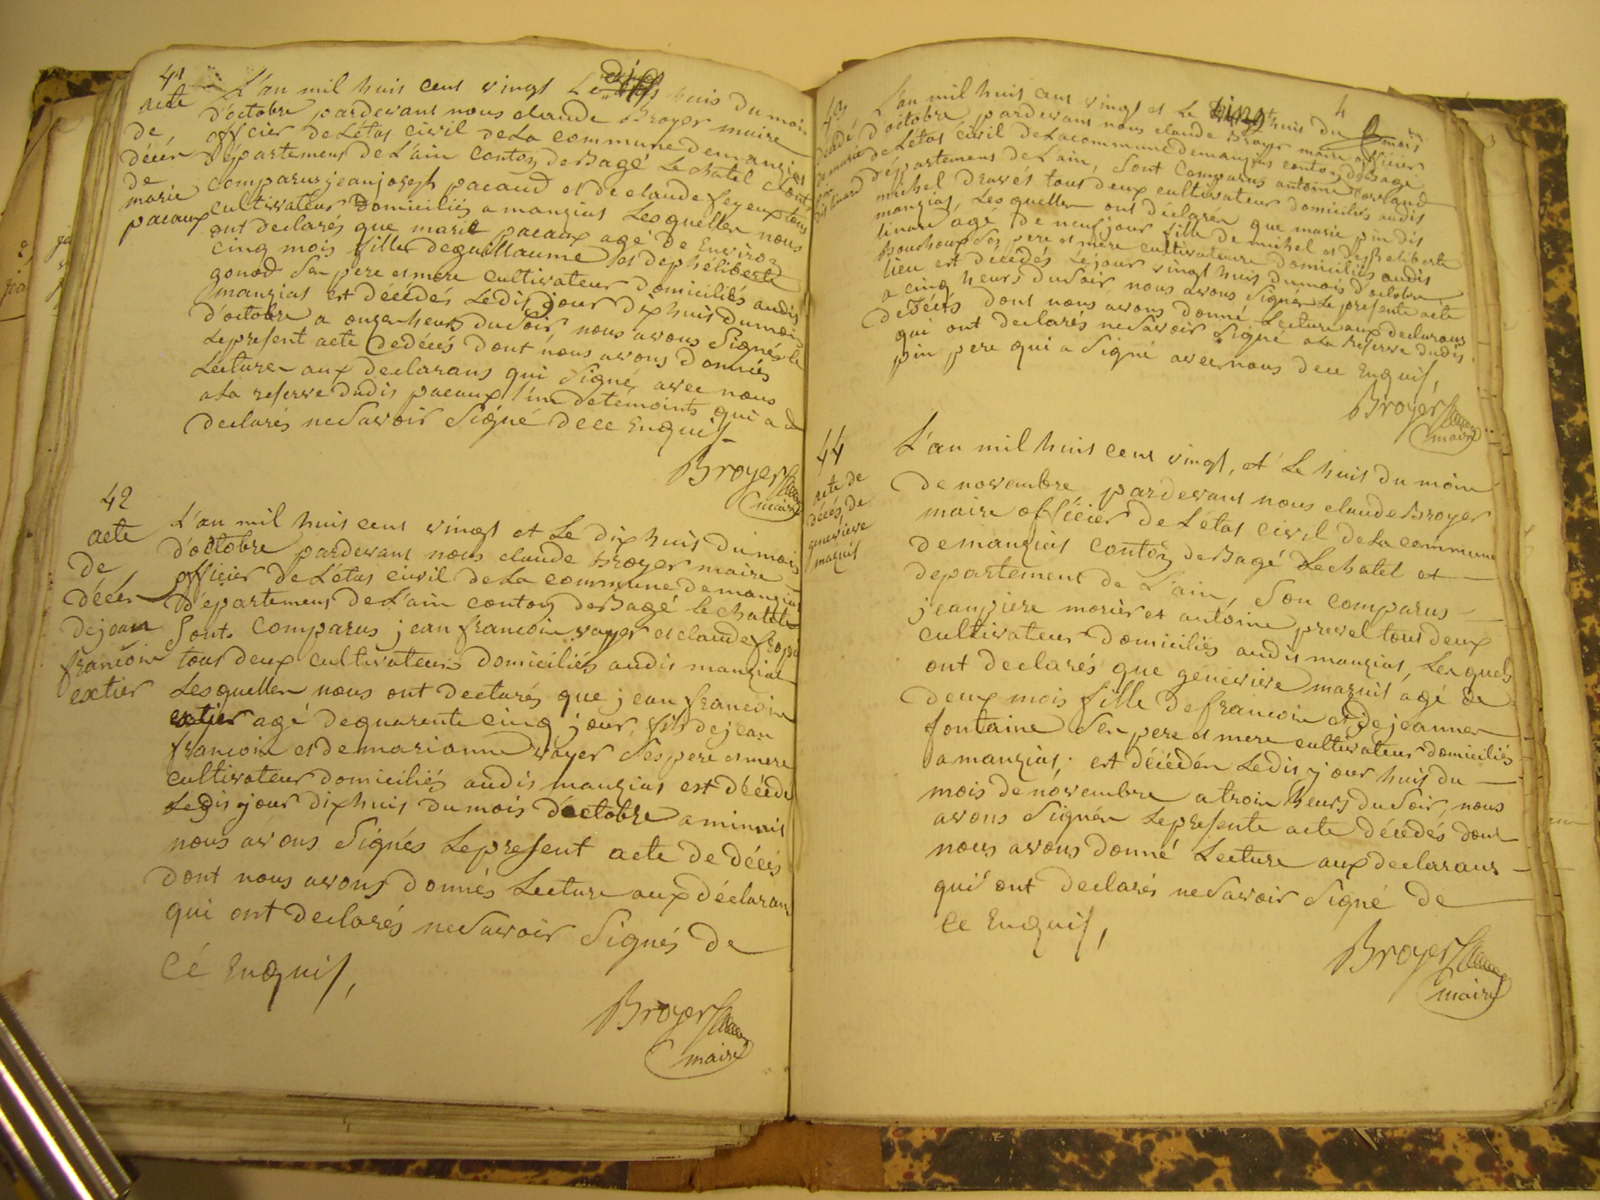 41
acte
de
décén
de
marie
pacaux
L'an mil huis cens vingt Le dix huis du mois
d'octobre pardevans nous claude Broyer maire
officier de L'étas civil de La commune demanzias
département de L'ain conton de Bagé Le chatel
comparus jean joseph pacaud et de claude feyeux tous
cultivateur Domiciliés a manzias Lesquellen nous
ont declarés que marie pacaux agé de Environ
cinq mois fille de guillaume et de phéliberte
gonod Sen pere et mere cultivateur domiciliés audis
manzias est décédés Ledis jour dix huis du mois
d'octobre a onze heurs du Soir nous avons Signés
Le present acte de décés dont nous avons donnés
Lecture aux declarans qui Signés avec nous
a La reserve dudis pacaux l'un detemoints qui a
declarés ne Savoir Signé de ce Enquis
Broyer
maire
42
acte
de
décén
de jean
françoin
extier
L'an mil huis cens vingt et Le dix huis du mois
d'octobre pardevans nous claude Broyer maire
officier de L'étas civil de La commune de manzias
département de L'ain conton de Bagé le chatel
Sont comparus jean françoin voyer et claude
tous deux cultivateurs domiciliés audis manzias
Lesquellen nous ont declarés que jean françoin
extier agé de quarente cinq jour, fils de jean
françoin et de marianne voyer Ses pere et mere
cultivateur domiciliés audis manzias est décédé
Ledis jour dix huis du mois d'octobre a minuis
nous avons Signés Le present acte de décés
dont nous avons donnés Lecture aux déclarans
qui ont declarés ne Savoir Signés de
Cé Enquis,
Broyer
maire
4
L'an mil huis cens vingt et Le vingt huis du mois
d'octobre pardevans nous claude Broyer maire officier
de L'étas civil de La commune demanzias conton de Bagé
département de L'ain, Sont Comparus antoine
michel Dravés tous deux cultivateur domiciliés audis
manzias, Lesquellen ont déclaren que marie pin dis
linard agé de neuf jour fille de michel et de pheliberte
Bouchoux Ses pere et mere cultivateurs domiciliés audis
lieu est décédés Le jour vingt huis du mois d'octobre
a cinq heurs du Soir nous avons Signer Le présente acte
decéées dont nous avons donné Lecture aux declarans
qui ont declarés ne Savoir Signé a La reserve dudis
pin pere qui a Signé avec nous de ce Enquis,
Broyer
maire
44
acte de
décés de
genevieve
mazuis
L'an mil huis cens vingt, et Le huis du moin
de novembre pardevans nous claude Broyer
maire officier de L'étas civil de La commune
demanzias conton de Bagé Lechatel et
departement de L'ain, Son comparus
jean piere morier et antoine prevel tous deux
cultivateur domiciliés audis manzias, Lesquels
ont declarés que genevieve mazuis agé de
deux mois fille de françoin et de jeannen
fontaine Sen pere et mere cultivateur domiciliés
a manzias, est décéden Ledis jour huis du
mois de novembre a troin heurs du Soir, nous
avons Signén Le presente acte décédés dont
nous avons donné Lecture aux declarans
qui ont declarés ne Savoir Signé de
Ce Enquis,
Broyer
maire